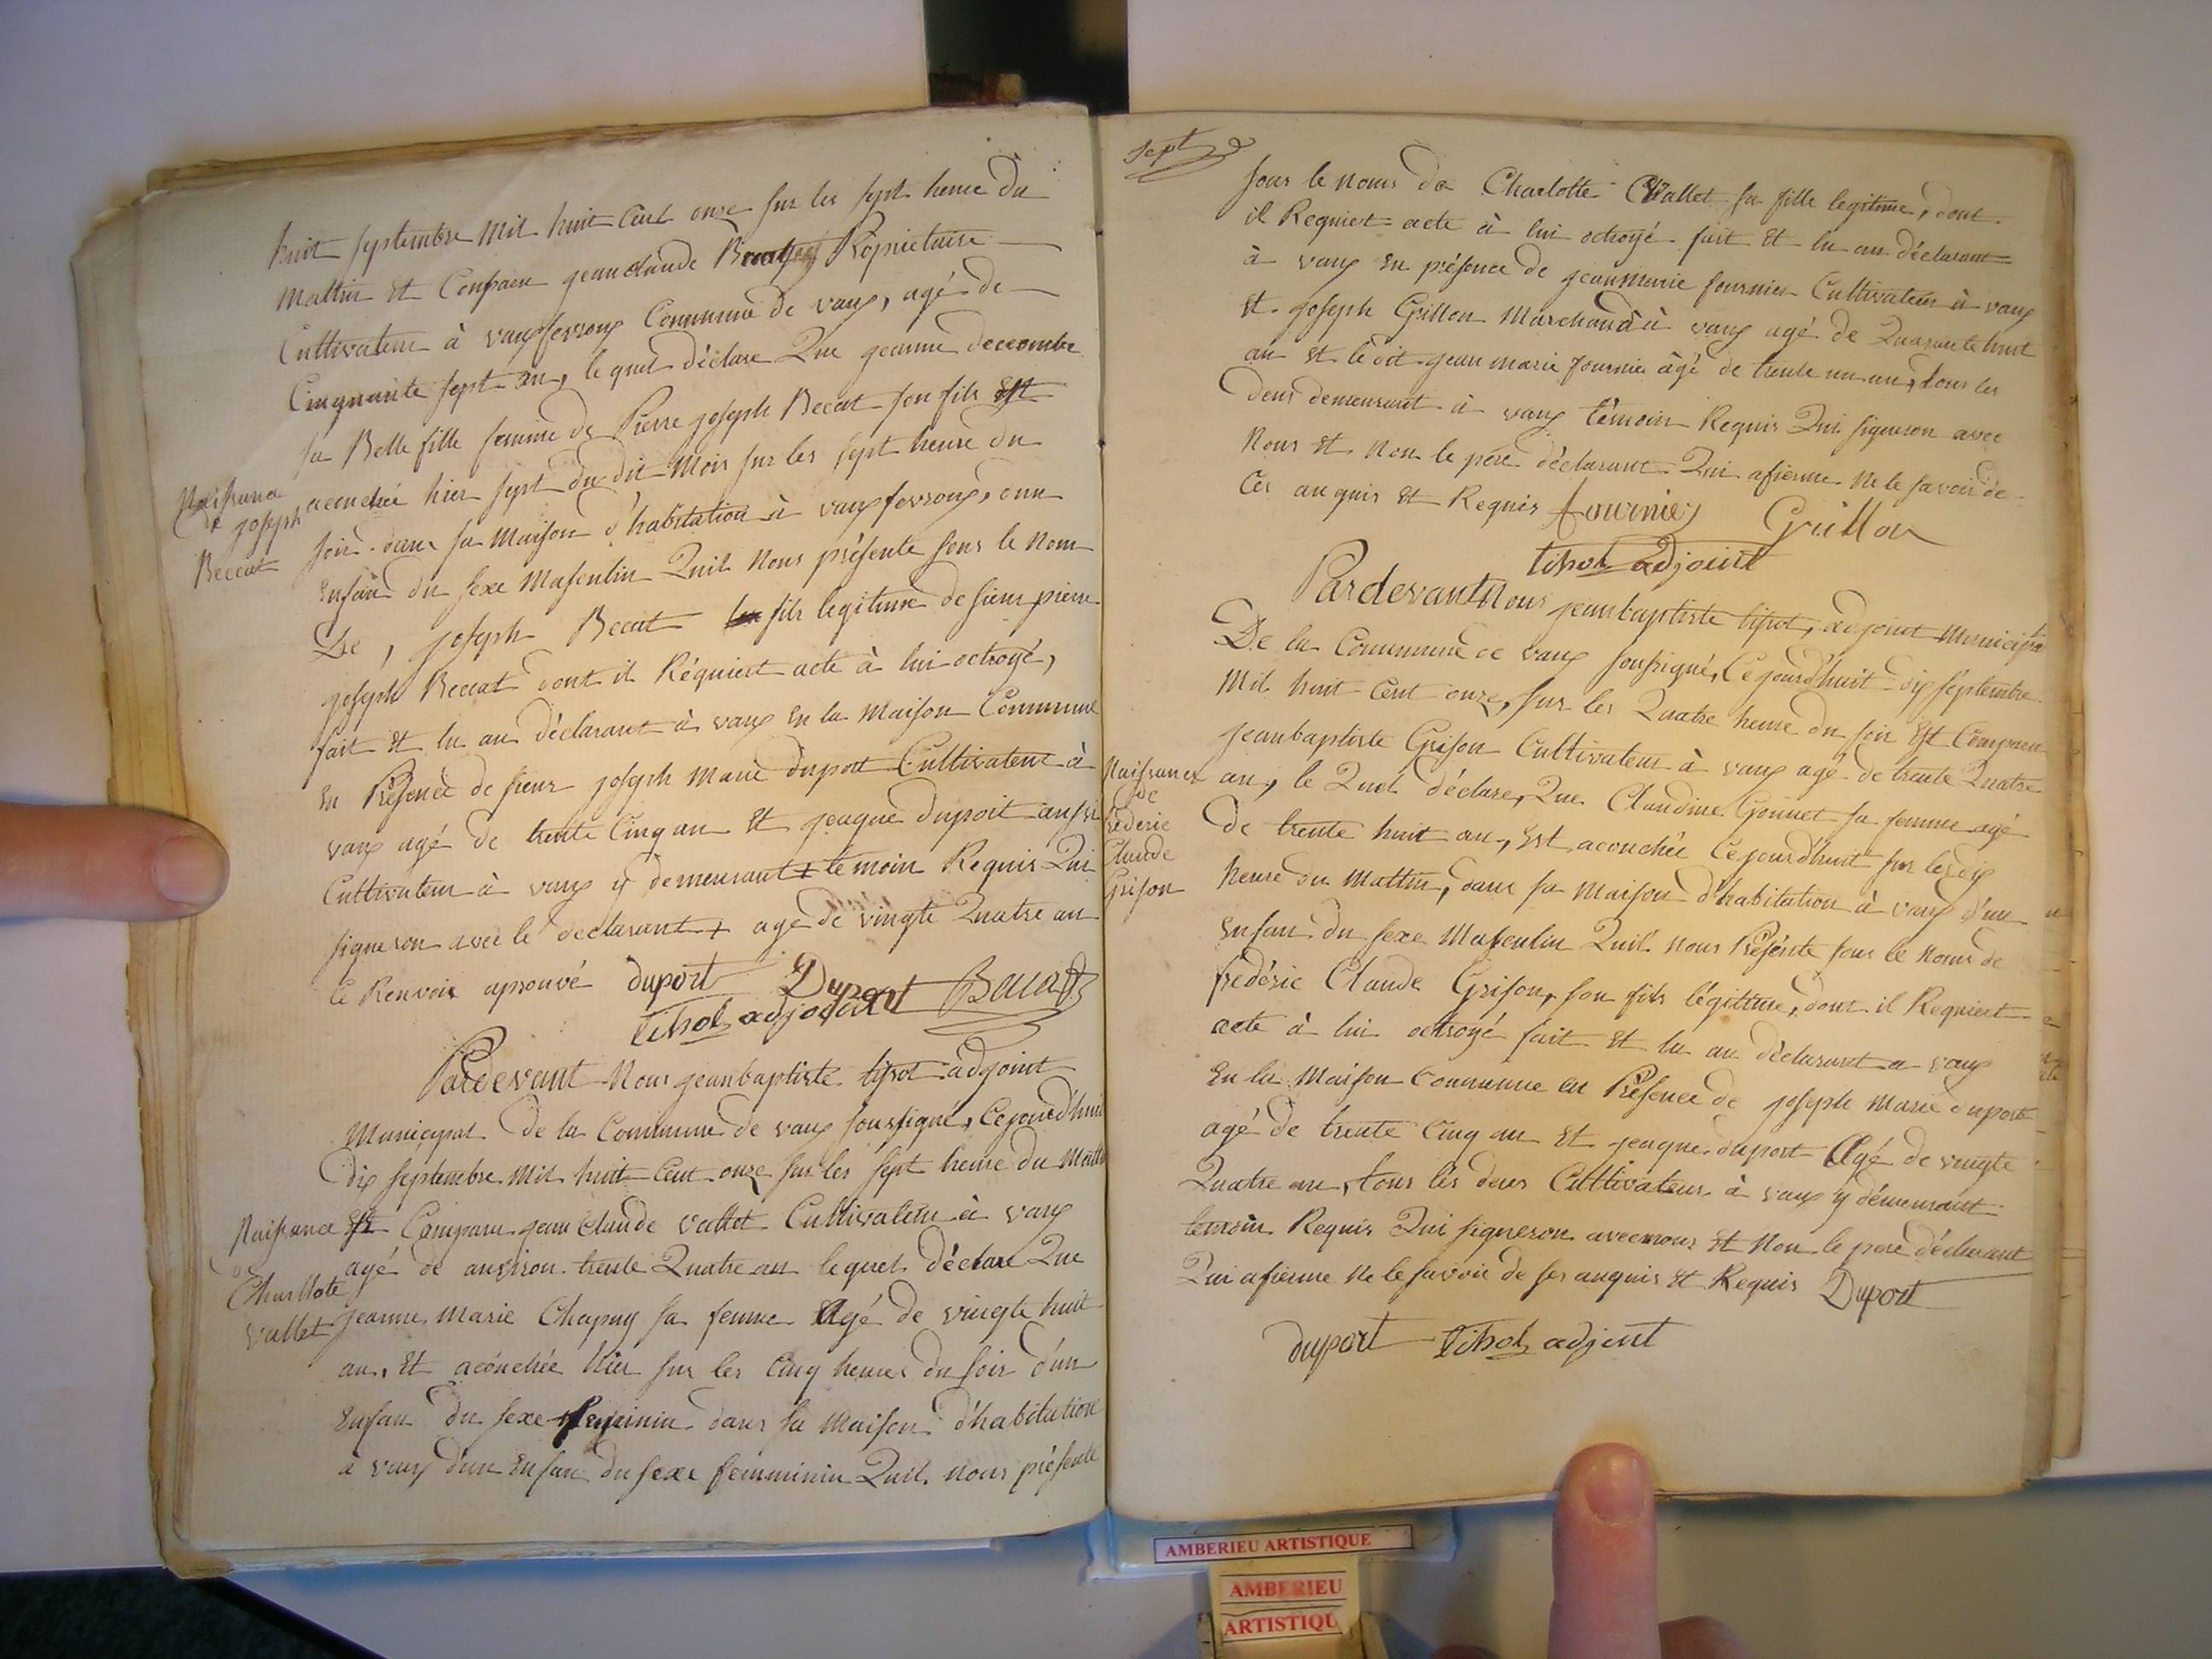 huit septembre mil huit Cent onze sur les sept heure du
Mattin et Conparu jean claude Propriétaire
Cultivateur à vauxfevroux Commune de vaux, agé de
Cinquante sept an, le quel déclare Que jeanne decombe
sa Belle fille femme de Pierre joseph Beccat son fils Est
acouchée hier sept du dit Mois sur les sept heure du
soir dans sa Maison d'habitation à vauxfevroux, d'un
Enfan du sexe Masculin Quil Nous présente sous le Nom
De, joseph Beccat fils legitime de sieur pierre
joseph Beccat dont il Réquiert acte à lui octroyé,
fait et lu au déclarant à vaux En la Maison Commune
En Présence de sieur joseph Marie duport Cultivateur à
vaux agé de trente Cinq an Et jeaque duport aussi
Cultivateur à vaux y demeurant + temoin Requis Qui
signeron avec le declarant + agé de vingte Quatre an
le Renvoix aprouvé duport Duport
tisot adjoint
Naissance
de joseph
Beccat
Pardevant Nous jean baptiste tisot adjoint
Municipal De la Commune de vaux soussigné, Cejourd'huit
dix septembre Mil huit Cent onze sur les sept heure du Mattin
Est Comparu jean Claude vallet Cultivateur à vaux
agé de anviron trente Quatre an lequel déclare Que
jeanne Marie Chapuy sa femme Agé de vingte huit
an, Et acouchée hier sur les Cinq heures du soir d'un
Enfan du sexe feminin dans sa Maison d'habitation
à vaux d'un Enfan du sexe femminin Quil nous présente
Naissance
de
Charllote
vallet
sept
sous le Noms de Charlotte Vallet sa fille legitime, dont
il Requiert acte à lui octroyé fait Et lu au déclarant
à vaux En présence de jean Marie fournier Cultivateur à vaux
Et joseph Grillon Marchand à vaux agé de Quarante huit
an Et ledit jean marie fournier âgé de trente un an, tous les
deux demeurant à vaux témoin Requis Qui signeron avec
Nous Et Non le père déclarant Qui afierme Ne le savoir de
Ces anquis Et Requis fournier Grillon
tisot adjoint
Pardevant Nous jean baptiste tisot, adjoint Municipal
De la Commune de vaux soussigné, Cejourd'huit dix septembre
Mil huit Cent onze, sur les Quatre heure du soir Est Comparu
jean baptiste Grison Cultivateur à vaux agé de trente Quatre
an, le Quel déclare, Que Claudine Gonnet sa femme agé
De trente huit an, Est acouchée Cejourd'huit sur les dix
heure du Mattin, dans sa Maison d'habitation à vaux d'un
Enfan du sexe Masculin Quil nous Présente sous le Noms de
fredéric Claude Grison, son fils légitime, dont il Requiert
acte à lui octroyé fait Et lu au déclarant a vaux
En la Maison Commune en Présence de joseph Marie duport
agé de trente Cinq an Et jeaque duport Agé de vingte
Quatre an, tous les deux Cultivateur à vaux y démeurant
temoin Requis Qui signeron avec nous Et Non le père déclarant
Qui afierme Ne le savoir de ses anquis Et Requis Duport
duport tisot adjoint
Naissance
de
fréderic
Claude
Grison
AMBERIEU ARTISTIQUE
AMBERIEU
ARTISTIQU